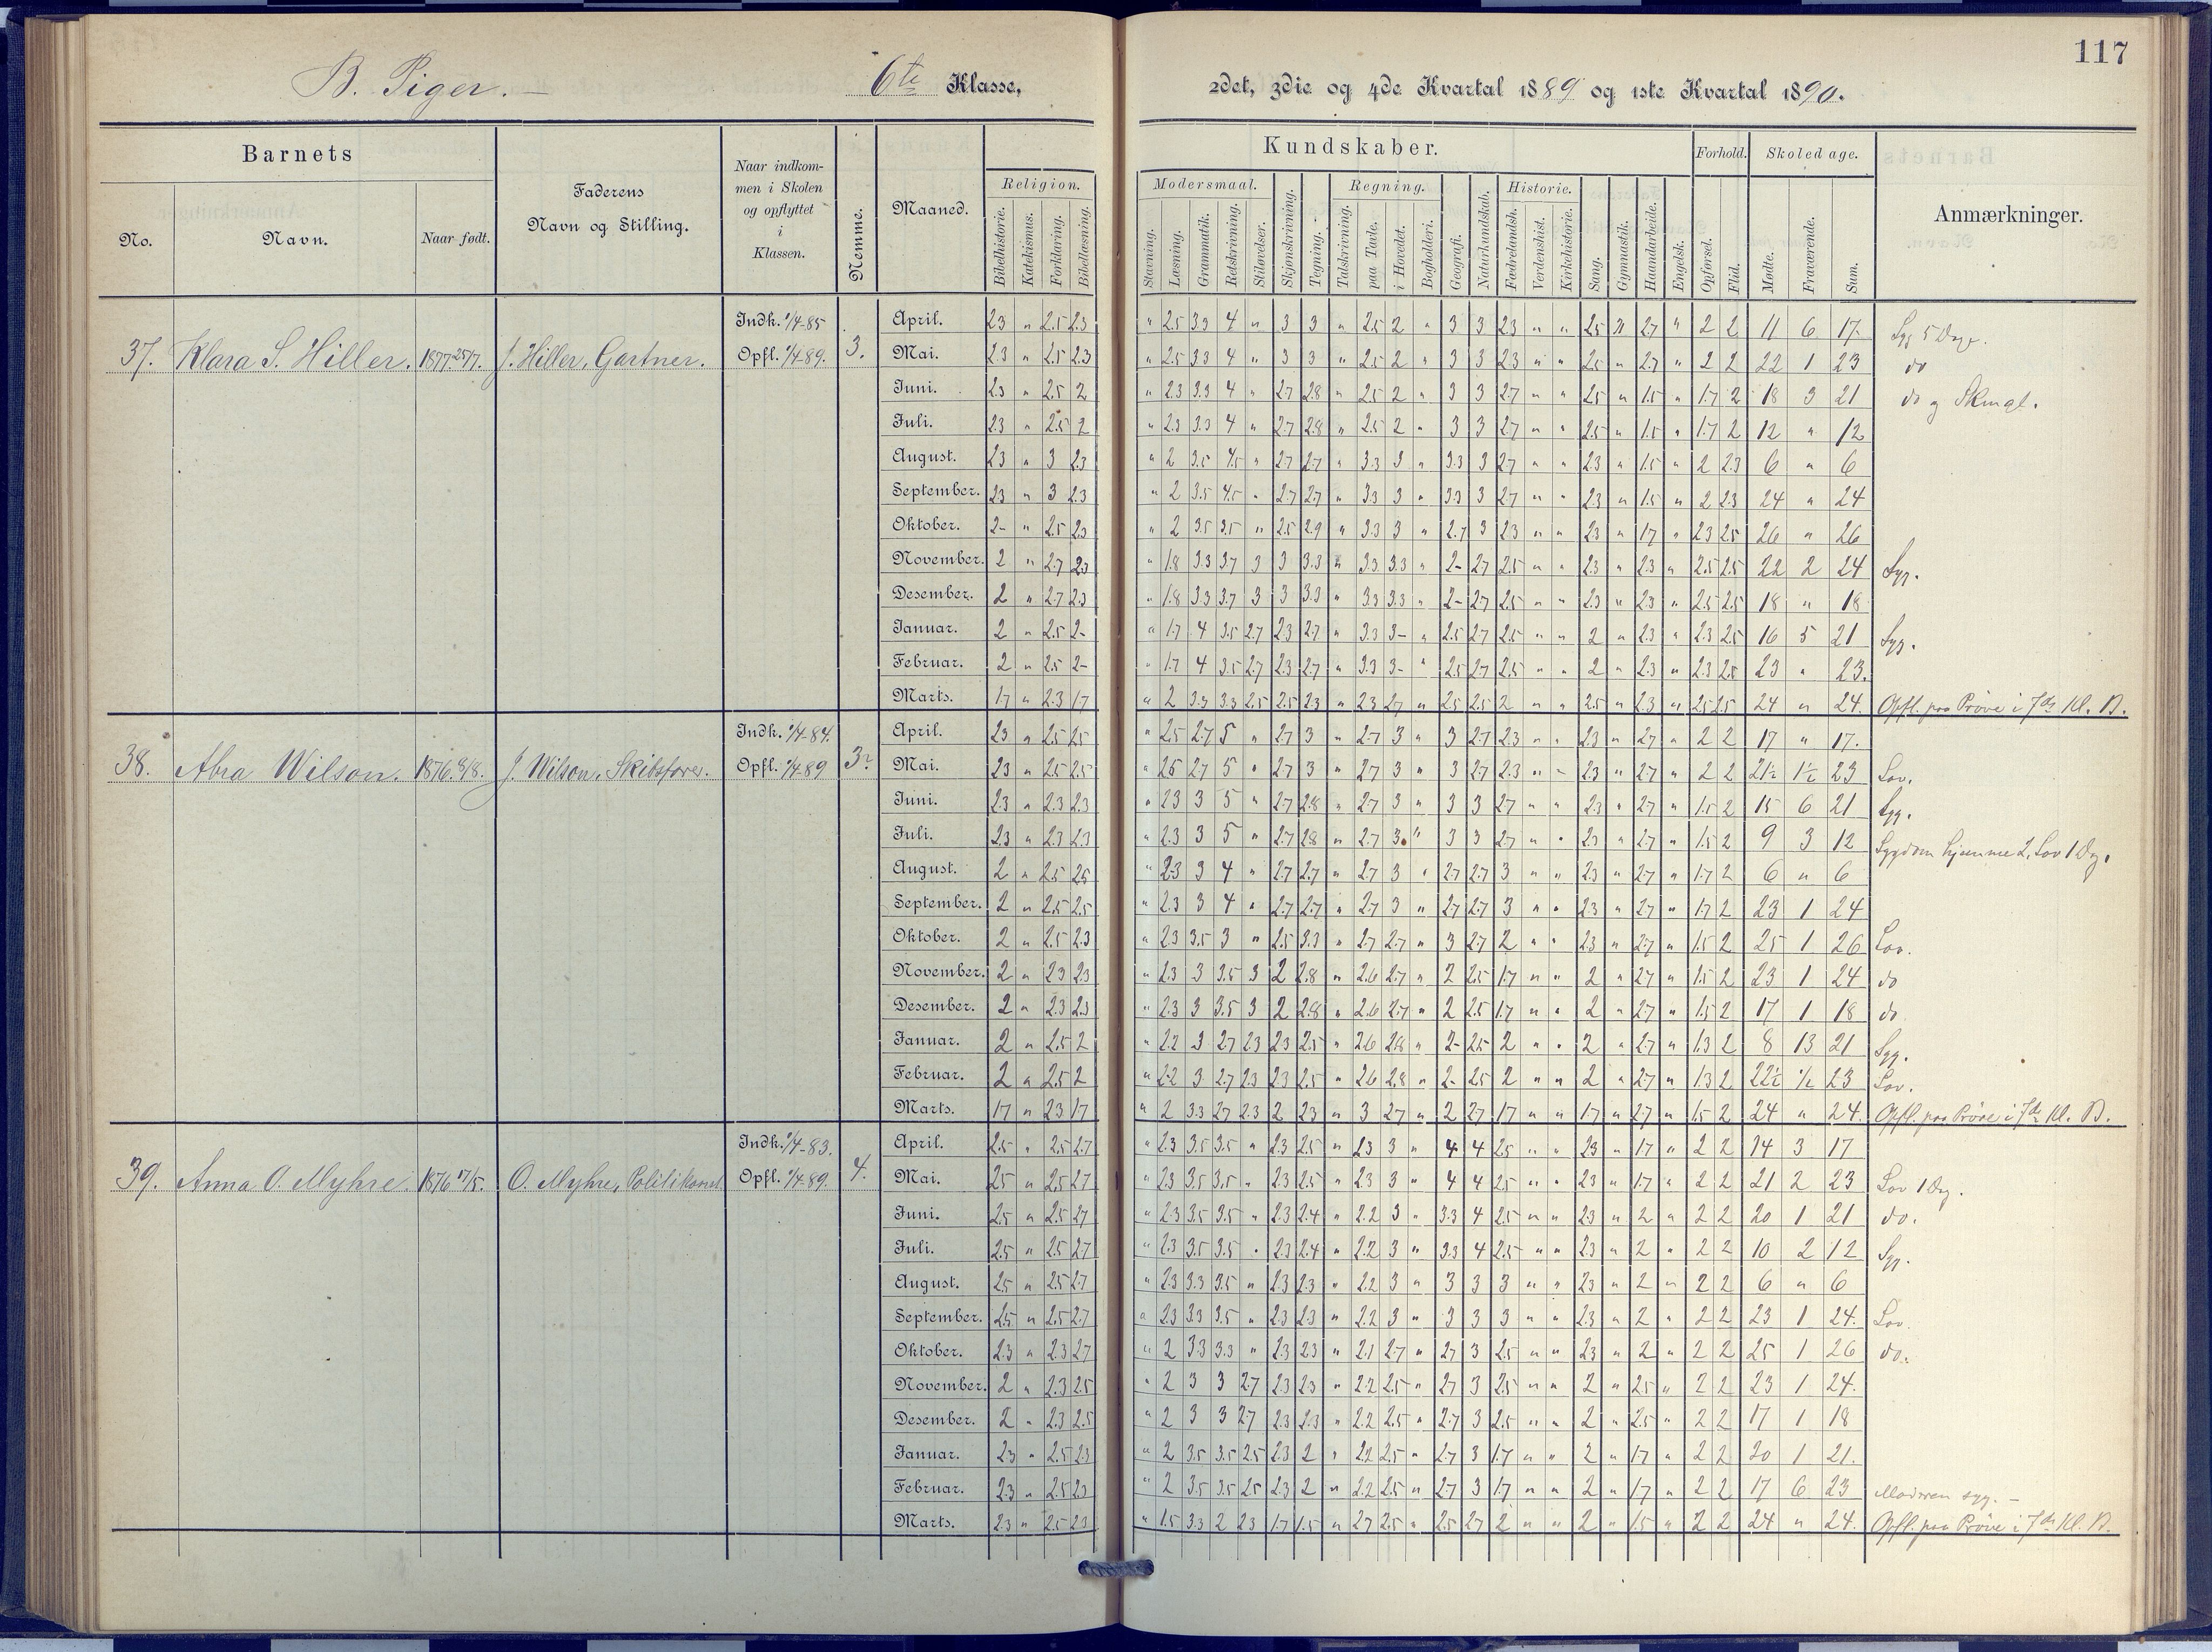 117
B. Piger. — 6te Klasse, 2det, 3die og 4de Kvartal 1889 og 1ste Kvartal 1890.
Barnets
No.
Navn.
Naar født.
Faderens
Navn og Stilling.
Naar indkom-
men i Skolen
og opflyttet
i
Klassen.
Nemme.
Maaned.
Kundskaber.
Religion.
Bibelhistorie. Katekismus. Forklaring. Bibellæsning.
Modersmaal.
Stavning. Læsning. Grammatik. Retskrivning. Stiløvelser.
Skjønskrivning. Tegning.
Regning.
Talskrivning. paa Tavle. i Hovedet. Bogholderi.
Geografi. Naturkundskab.
Historie.
Fædrelandsh. Verdenshist. Kirkehistorie.
Sang. Gymnastik. Haandarbeide. Engelsk.
Forhold.
Opførsel. Flid.
Skoledage.
Mødte. Fraværende. Sum.
Anmærkninger.
37. Klara S. Hiller. 1877 25/7. J. Hiller, Gartner. Indk. 1/4-85 Opfl. 1/4-89. 3.
April. 2.3 " 2.5 2.3 " 2.5 3.3 4 " 3 3 " 2.5 2 " 3 3 2.3 " " 2.5 " 2.7 " 2 2 11 6 17. Syg 5 Dage.
Mai. 2.3 " 2.5 2.3 " 2.5 3.3 4 " 3 3 " 2.5 2 " 3 3 2.3 " " 2.5 " 2.7 " 2 2 22 1 23 do
Juni. 2.3 " 2.5 2 " 2.3 3.3 4 " 2.7 2.8 " 2.5 2 " 3 3 2.7 " " 2.5 " 1.5 " 1.7 2 18 3 21 do og
Juli. 2.3 " 2.5 2 " 2.3 3.3 4 " 2.7 2.8 " 2.5 2 " 3 3 2.7 " " 2.5 " 1.5 " 1.7 2 12 " 12
August. 2.3 " 3 2.3 " 2 3.5 4.5 " 2.7 2.7 " 3.3 3 " 3.3 3 2.7 " " 2.3 " 1.5 " 2 2.3 6 " 6
September. 2.3 " 3 2.3 " 2 3.5 4.5 " 2.7 2.7 " 3.3 3 " 3.3 3 2.7 " " 2.3 " 1.5 " 2 2.3 24 " 24
Oktober. 2- " 2.5 2.3 " 2 3.5 3.5 " 2.5 2.9 " 3.3 3 " 2.7 3 2.3 " " 2.3 " 1.7 " 2.3 2.5 26 " 26
November. 2 " 2.7 2.3 " 1.8 3.3 3.7 3 3 3.3 " 3.3 3.3 " 2- 2.7 2.5 " " 2.3 " 2.3 " 2.5 2.5 22 2 24 Syg.
Desember. 2 " 2.7 2.3 " 1.8 3.3 3.7 3 3 3.3 " 3.3 3.3 " 2- 2.7 2.5 " " 2.3 " 2.3 " 2.5 2.5 18 " 18
Januar. 2 " 2.5 2- " 1.7 4 3.5 2.7 2.3 2.7 " 3.3 3- " 2.5 2.7 2.5 " " 2 " 2.3 " 2.3 2.5 16 5 21 Syg.
Februar. 2 " 2.5 2- " 1.7 4 3.5 2.7 2.3 2.7 " 3.3 3- " 2.5 2.7 2.5 " " 2 " 2.3 " 2.3 2.5 23 " 23.
Marts. 1.7 " 2.3 1.7 " 2 3.3 3.3 2.5 2.5 2.3 " 2.3 2.7 " 2.5 2.5 2 " " 2.5 " 2.3 " 2.5 2.5 24 " 24. Opfl. paa Prøve i 7de Kl. B.
38. Abra Wilson. 1876 8/8. J. Wilson, Skibsfører. Indk. 1/4-84. Opfl. 1/4-89 3
April. 2.3 " 2.5 2.5 " 2.5 2.7 5 " 2.7 3 " 2.7 3 " 3 2.7 2.3 " " 2.3 " 2.7 " 2 2 17 " 17.
Mai. 2.3 " 2.5 2.5 " 2.5 2.7 5 " 2.7 3 " 2.7 3 " 3 2.7 2.3 " " 2.3 " 2.7 " 2 2 21½ 1½ 23 Lov.
Juni. 2.3 " 2.3 2.3 " 2.3 3 5 " 2.7 2.8 " 2.7 3 " 3 3 2.7 " " 2.3 " 2.7 " 1.5 2 15 6 21 Syg.
Juli. 2.3 " 2.3 2.3 " 2.3 3 5 " 2.7 2.8 " 2.7 3 " 3 3 2.7 " " 2.3 " 2.7 " 1.5 2 9 3 12 Sygdom hjemme 2, Lov 1 Dg.
August. 2 " 2.5 2.5 " 2.3 3 4 " 2.7 2.7 " 2.7 3 " 2.7 2.7 3 " " 2.3 " 2.7 " 1.7 2 6 " 6
September. 2 " 2.5 2.5 " 2.3 3 4 " 2.7 2.7 " 2.7 3 " 2.7 2.7 3 " " 2.3 " 2.7 " 1.7 2 23 1 24
Oktober. 2 " 2.5 2.3 " 2.3 3.5 3 " 2.5 3.3 " 2.7 2.7 " 3 2.7 2 " " 2.3 " 2.7 " 1.5 2 25 1 26 Lov.
November. 2 " 2.3 2.3 " 2.3 3 3.5 3 2 2.8 " 2.6 2.7 " 2 2.5 1.7 " " 2 " 2.7 " 1.5 2 23 1 24 do
Desember. 2 " 2.3 2.3 " 2.3 3 3.5 3 2 2.8 " 2.6 2.7 " 2 2.5 1.7 " " 2 " 2.7 " 1.5 2 17 1 18 do
Januar. 2 " 2.5 2 " 2.2 3 2.7 2.3 2.3 2.5 " 2.6 2.8 " 2- 2.5 2 " " 2 " 2.7 " 1.3 2 8 13 21 Syg.
Februar. 2 " 2.5 2 " 2.2 3 2.7 2.3 2.3 2.5 " 2.6 2.8 " 2- 2.5 2 " " 2 " 2.7 " 1.3 2 22½ ½ 23 Lov.
Marts. 1.7 " 2.3 1.7 " 2 3.3 2.7 2.3 2 2.3 " 3 2.7 " 2 2.7 1.7 " " 1.7 " 2.7 " 1.5 2 24 " 24. Opfl. paa Prøve i 7de Kl. B.
39. Anna O. Myhre. 1876 17/5. O. Myhre, Politikonst. Indk. 1/4-83. Opfl. 1/4-89. 4.
April. 2.5 " 2.5 2.7 " 2.3 3.5 3.5 " 2.3 2.5 " 2.3 3 " 4 4 2.5 " " 2.3 " 1.7 " 2 2 14 3 17
Mai. 2.5 " 2.5 2.7 " 2.3 3.5 3.5 " 2.3 2.5 " 2.3 3 " 4 4 2.5 " " 2.3 " 1.7 " 2 2 21 2 23 Lov 1 Dg.
Juni. 2.5 " 2.5 2.7 " 2.3 3.5 3.5 " 2.3 2.4 " 2.2 3 " 3.3 4 2.5 " " 2.3 " 2 " 2 2 20 1 21 do.
Juli. 2.5 " 2.5 2.7 " 2.3 3.5 3.5 " 2.3 2.4 " 2.2 3 " 3.3 4 2.5 " " 2.3 " 2 " 2 2 10 2 12 Syg.
August. 2.5 " 2.5 2.7 " 2.3 3.3 3.5 " 2.3 2.3 " 2.2 3 " 3 3 3 " " 2.3 " 2 " 2 2 6 " 6
September. 2.5 " 2.5 2.7 " 2.3 3.3 3.5 " 2.3 2.3 " 2.2 3 " 3 3 3 " " 2.3 " 2 " 2 2 23 1 24. Lov.
Oktober. 2.3 " 2.3 2.7 " 2 3.3 3.3 " 2.3 2.3 " 2.1 2.7 " 2.7 3 2.5 " " 2.3 " 2 " 2 2 25 1 26 do.
November. 2 " 2.3 2.5 " 2 3 3 2.7 2.3 2.3 " 2.2 2.5 " 2.7 3 2.5 " " 2 " 2.5 " 2 2 23 1 24.
Desember. 2 " 2.3 2.5 " 2 3 3 2.7 2.3 2.3 " 2.2 2.5 " 2.7 3 2.5 " " 2 " 2.5 " 2 2 17 1 18
Januar. 2.3 " 2.5 2.3 " 2 3.5 3.5 2.5 2.3 2 " 2.2 2.5 " 2.7 3 1.7 " " 2 " 1.7 " 2 2 20 1 21.
Februar. 2.3 " 2.5 2.3 " 2 3.5 3.5 2.5 2.3 2 " 2.2 2.5 " 2.7 3 1.7 " " 2 " 1.7 " 2 2 17 6 23 Moderen syg. —
Marts. 2.3 " 2.5 2.3 " 1.5 3.3 2 2.3 1.7 1.5 " 2.7 2.5 " 2.5 2.7 2 " " 2 " 1.5 " 2 2 24 " 24. Opfl. paa Prøve i 7de Kl. B.